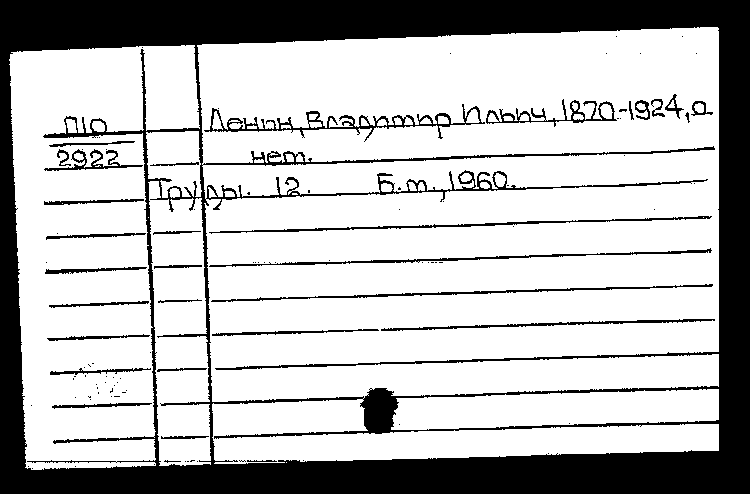 П10 Ленин, Владимир Ильич, 1870-1924, о
2922 нем.
Труды. 12. Б.т., 1960.